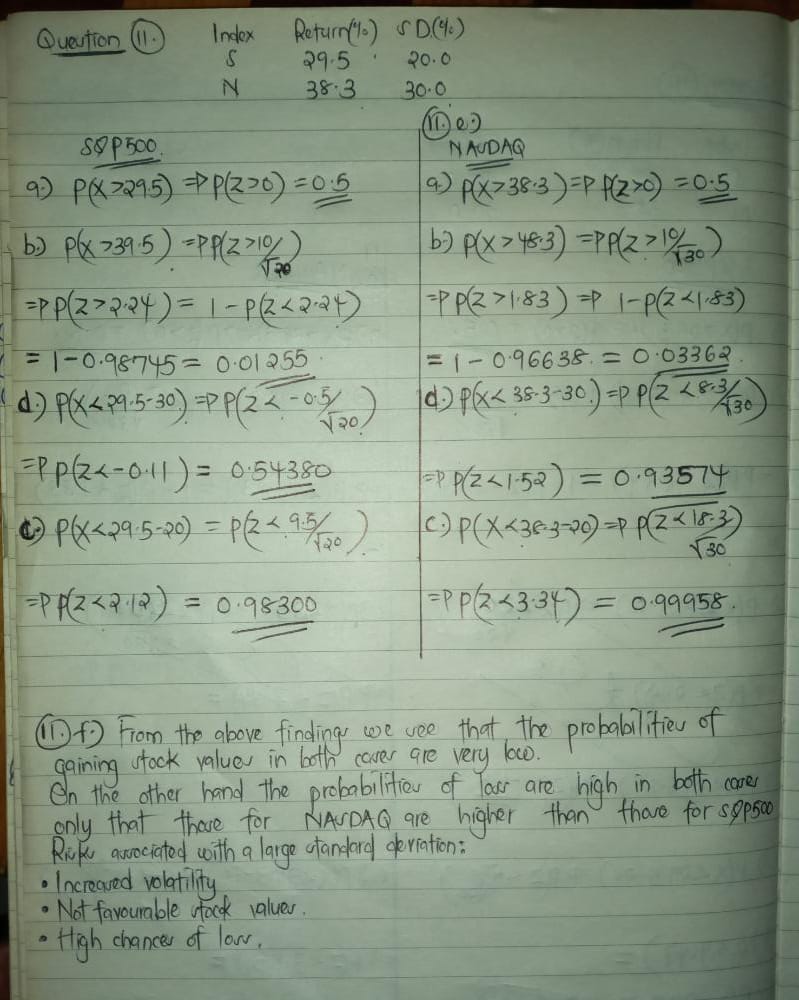 Question 11. Index Return(%) SD.(%)
S 29.5 20.0
N 38.3 30.0
S&P500
a.) P(X>29.5) => P(Z>0) = 0.5
b.) P(X>39.5) => P(Z>10/√20)
=> P(Z>2.24) = 1-P(Z<2.24)
= 1-0.98745 = 0.01255.
d.) P(X<29.5-30) => P(Z<-0.5/√20)
=> P(Z<-0.11) = 0.54380
c.) P(X<29.5-20) = P(Z<9.5/√20)
=> P(Z<2.12) = 0.98300
11. e.)
NASDAQ
a.) P(X>38.3) => P(Z>0) = 0.5
b.) P(X>48.3) => P(Z>10/√30)
=> P(Z>1.83) => 1-P(Z<1.83)
= 1-0.96638. = 0.03362.
d.) P(X<38.3-30.) => P(Z<8.3/√30)
=> P(Z<1.52) = 0.93574
c.) P(X<38.3-20) => P(Z<18.3/√30)
=> P(Z<3.34) = 0.99958.
11. f.) From the above findings we see that the probabilities of
gaining stock values in both cases are very low.
On the other hand the probabilities of loss are high in both cases
only that those for NASDAQ are higher than those for S&P500
Risks associated with a large standard deviation:
• Increased volatility
• Not favourable stock values.
• High chances of loss.